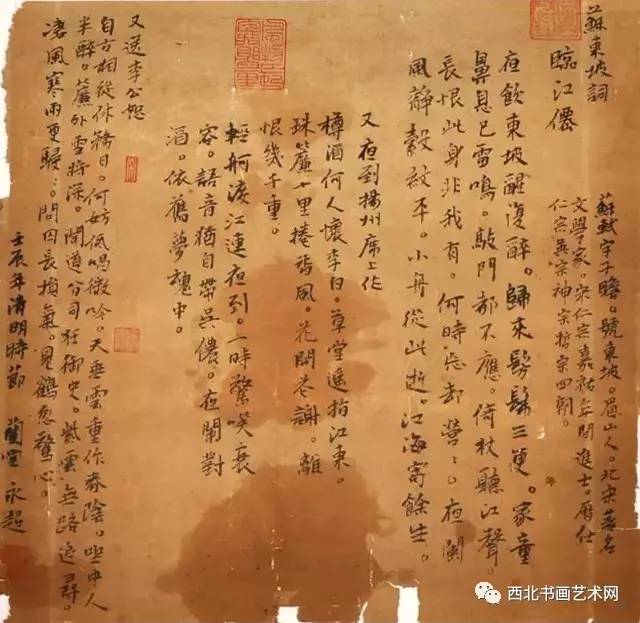 蘇東坡詞
臨江僊
蘇軾字子瞻。號東坡。眉山人。北宋著名
文學家。宋仁宗嘉祐年間進士。歷仕
仁宗英宗神宗哲宗四朝。
夜飲東坡醒復醉。歸來髣髴三更。家童
鼻息已雷鳴。敲門都不應。倚杖聽江聲。
長恨此身非我有。何時忘卻營〻。夜闌
風靜縠紋平。小舟從此逝。江海寄餘生。
又夜到揚州席上作
樽酒何人懷李白。草堂遙指江東。
珠簾十里捲香風。花開花謝。離
恨幾千重。
輕舸渡江連夜到。一時驚笑衰
容。語音猶自帶吳儂。夜闌對
酒。依舊夢魂中。
又送李公恕
自古相從休務日。何妨低唱微吟。天垂雲重作春陰。坐中人
半醉。簾外雪將深。聞道分司狂御史。紫雲無路追尋。
淒風寒雨更駸〻。問囚長損氣。見鶴忽驚心。
壬辰年清明時節 蘭室 永超
西北书画艺术网